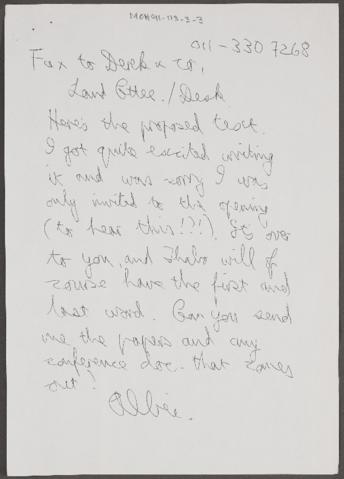 MCH91-113-3-3
011-330 7268
Fax to Derek & Co,
Land Cttee./Desk
Here's the proposed text.
I got quite excited writing
it and was sorry I was
only invited to the opening
(to hear this!?!). It's over
to you, and Thabo will of
course have the first and
last word. Can you send
me the papers and any
conference doc. that comes
out?
Albie.